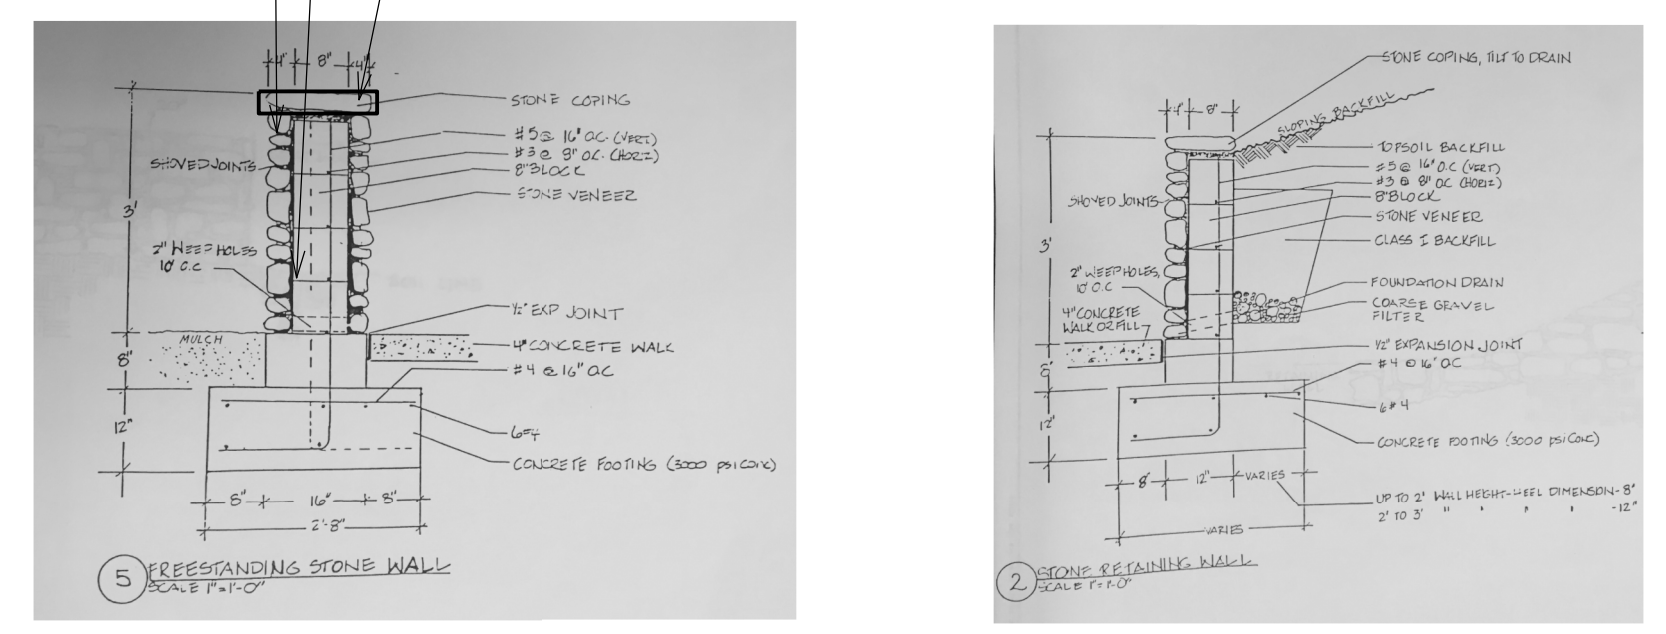 4" 8" 4"
STONE COPING
#5 @ 16" O.C. (VERT)
#3 @ 8" O.C. (HORIZ)
8" BLOCK
SHOVED JOINTS
STONE VENEER
3'
2" WEEP HOLES
10' O.C
1/2" EXP JOINT
MULCH
4" CONCRETE WALK
8"
#4 @ 16" O.C
12"
6#4
CONCRETE FOOTING (3000 PSI CONC)
8" 16" 8"
2'-8"
5 FREESTANDING STONE WALL
SCALE 1"=1'-0"
STONE COPING, TILT TO DRAIN
4" 8"
SLOPING BACKFILL
TOPSOIL BACKFILL
#5 @ 16" O.C (VERT)
#3 @ 8" OC (HORIZ)
8" BLOCK
SHOVED JOINTS
STONE VENEER
3'
CLASS I BACKFILL
2" WEEP HOLES,
10' O.C
FOUNDATION DRAIN
4" CONCRETE
WALK OR FILL
COARSE GRAVEL
FILTER
1/2" EXPANSION JOINT
8"
#4 @ 16" O.C
6#4
12"
CONCRETE FOOTING (3000 PSI CONC)
8" 12" VARIES
UP TO 2' WALL HEIGHT-HEEL DIMENSION-8"
2' TO 3' " " " " -12"
VARIES
2 STONE RETAINING WALL
SCALE 1"=1'-0"